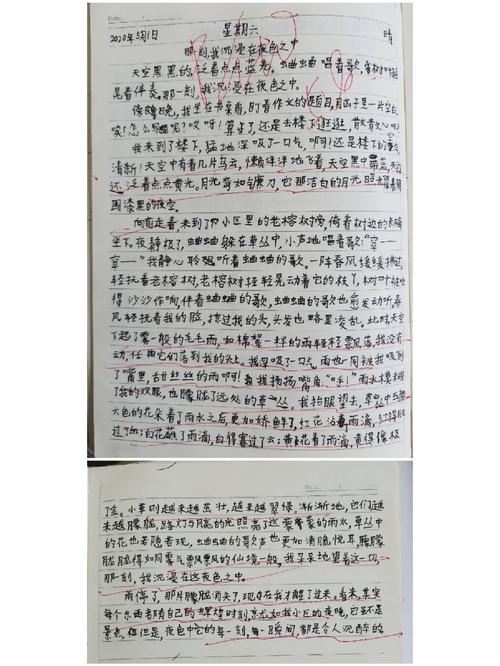 2020年5月1日 星期六 晴
那刻,我沉浸在夜色之中
天空黑黑的,泛着点点蓝光。蛐蛐唱着歌,
晃着伴奏。那一刻,我沉浸在夜色之中。
傍晚,我坐在书桌前,盯着作文的题目,脑子里一片空白
唉!怎么写呢?哎呀!算了,还是去楼下逛逛,散散心吧!
我来到了楼下,猛地深吸了一口气,啊!还是楼下的空气
清新!天空中有着几片乌云,懒洋洋地飞着,天空黑中带蓝,天边
还泛着点点黄光。月光弯如镰刀,它那洁白的月光照耀着周
围漆黑的夜空。
向前走着,来到了小区里的老榕树旁,倚着树边的长椅
坐下。夜静极了,蛐蛐躲在草丛中,小声地唱着歌:“窣—
窣—”我静心聆听着蛐蛐的歌。一阵春风缓缓拂过,
轻抚着老榕树,老榕树轻轻晃动着它的枝丫,树叶被吹
得沙沙作响,伴着蛐蛐的歌,蛐蛐的歌也愈发动听,春
风轻抚着我的脸,拂过我的头,头发也略显凌乱。此时天空
下起了雾一般的毛毛雨,如棉絮一样的雨轻轻飘落,我没有
动,任由它们落到我的头上。我深吸了一口气,雨也一同被我吸到
了嘴里,甜丝丝的雨啊!我扬扬嘴角“呼!”雨水模糊
了我的双眼,也朦胧了远处的草丛。我抬眼望去,草丛中五颜
六色的花朵着了雨水之后更加娇鲜了,红花沾着雨滴,红得胜
过了血;白花蘸了雨滴,白得赛过了云;黄花着了雨滴,黄得像极
了金。小草则越来越茁壮,越来越翠绿,渐渐地,它们越
来越朦胧,路灯与月亮的光照亮了这蒙蒙的雨水,草丛中
的花也若隐若现,蛐蛐的歌声也更加清脆悦耳,朦朦
胧胧得如同雾气飘飘的仙境一般,我呆呆地望着这一切,
那一刻,我沉浸在这夜色之中。
雨停了,那片朦胧消失了,现在我才醒了过来。看来,其实
每个东西都有自己的辉煌时刻,就如我小区的夜晚,它虽不是
景点,但是,夜色中它的每一刻,每一瞬间,都是令人沉醉的